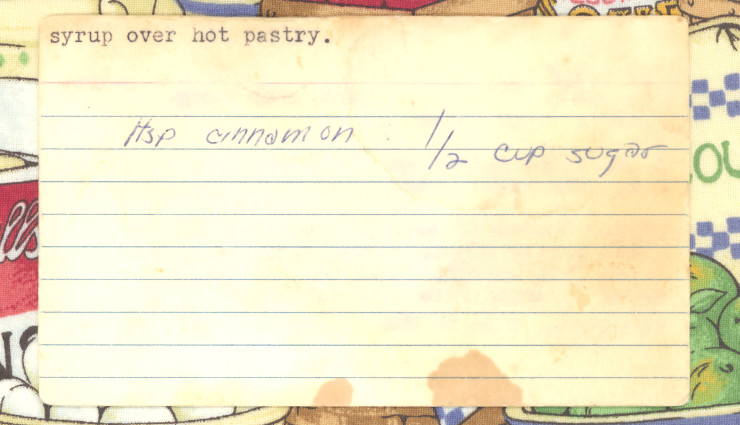 syrup over hot pastry.
1tsp cinnamon 1/2 cup sugar
lls
OU